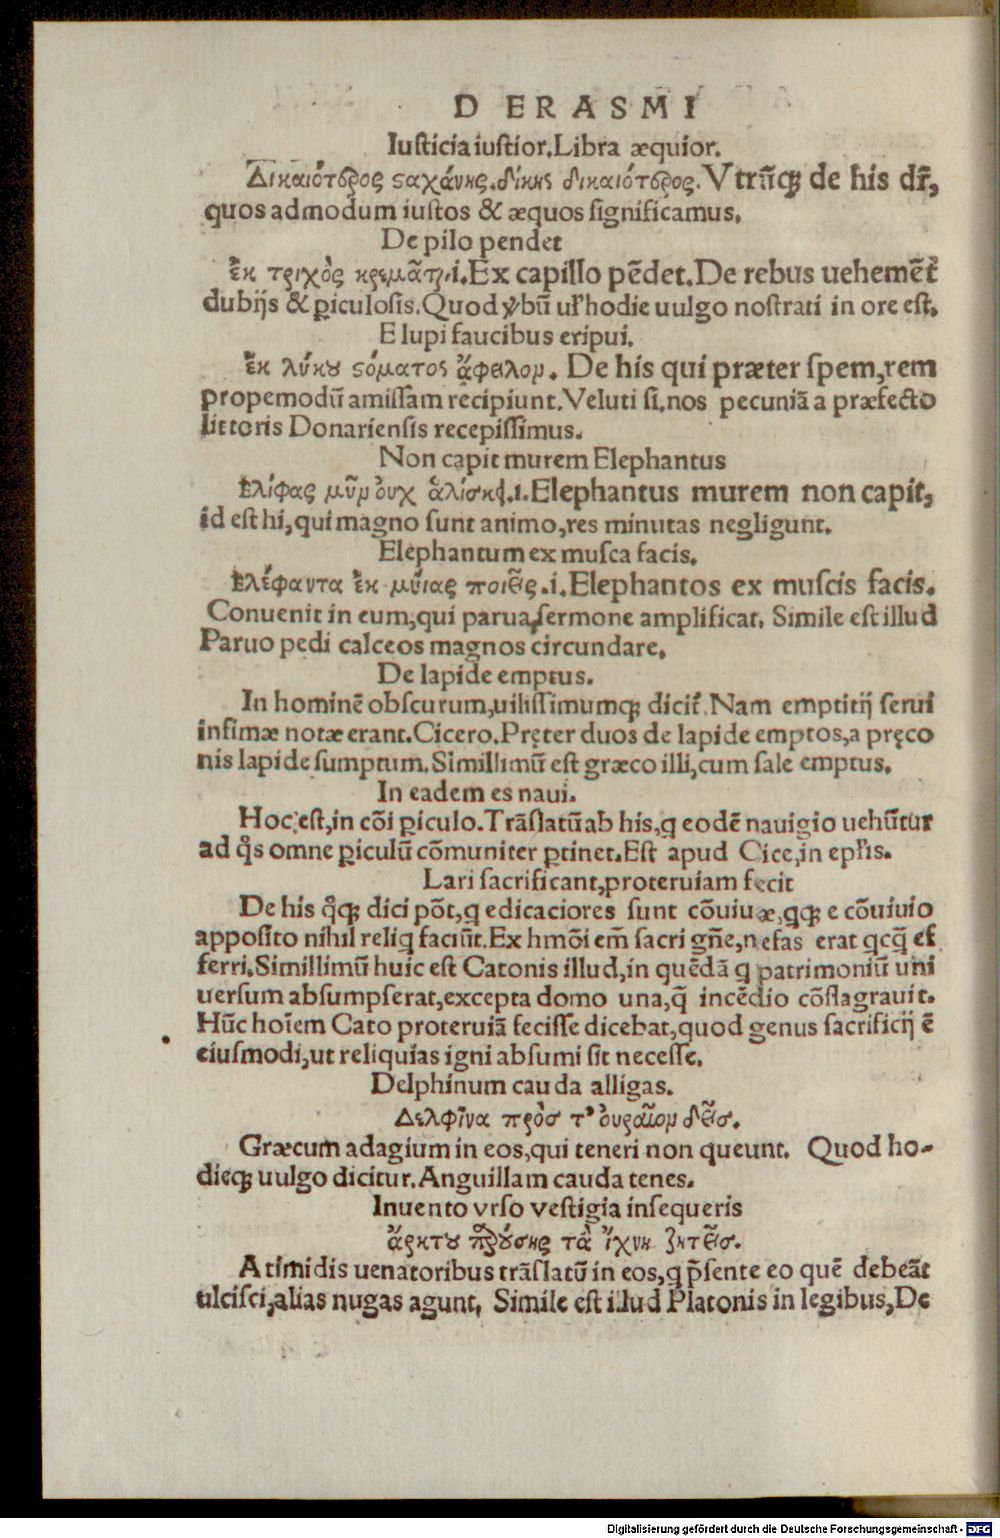 D ERASMI
Iusticia iustior. Libra æquior.
Δικαιότερος ϛαχάνης. δίκης δικαιότερος. Vtrūq; de his dr̄,
quos admodum iustos & æquos significamus.
De pilo pendet
ἐκ τριχὸς κρεμᾶται. i. Ex capillo pēdet. De rebus uehemēt̄
dubijs & ꝑiculosis. Quod ꝟbū ul̓ hodie uulgo nostrati in ore est.
E lupi faucibus eripui.
ἐκ λύκȣ ϛόματος ἄφειλομ. De his qui præter spem, rem
propemodū amissam recipiunt. Veluti si nos pecuniā a præfecto
littoris Donariensis recepissimus.
Non capit murem Elephantus
ἐλέφας μῦρ ουχ ἁλίσκει. i. Elephantus murem non capit,
id est hi, qui magno sunt animo, res minutas negligunt.
Elephantum ex musca facis.
ἐλέφαντα ἐκ μύιας ποιεῖς. i. Elephantos ex muscis facis.
Conuenit in eum, qui parua, sermone amplificat. Simile est illud
Paruo pedi calceos magnos circundare.
De lapide emptus.
In hominē obscurum, uilissimumq; dicit̄. Nam emptitij serui
infimæ notæ erant. Cicero. Pręter duos de lapide emptos, a pręco
nis lapide sumptum. Simillimū est græco illi, cum sale emptus.
In eadem es naui.
Hoc est, in cōi ꝑiculo. Trāslatū ab his, q eodē nauigio uehūtur
ad q̊s omne ꝑiculū cōmuniter ꝑtinet. Est apud Cice, in epl̓is.
Lari sacrificant, proteruiam fecit
De his q̊q; dici pōt, q edicaciores sunt cōuiuæ, qq; e cōuiuio
apposito nihil reliq faciūt. Ex hmōi em̄ sacri gn̄e, nefas erat qcq̄ ef
ferri. Simillimū huic est Catonis illud, in quēdā q patrimoniū uni
uersum absumpserat, excepta domo una, q̄ incēdio cōflagrauit.
Hūc hoīem Cato proteruiā fecisse dicebat, quod genus sacrificij ē
eiusmodi, ut reliquias igni absumi sit necesse.
Delphinum cauda alligas.
Δελφῖνα πρὸσ τ' ουραῖομ δεῖσ.
Græcum adagium in eos, qui teneri non queunt. Quod ho-
dieq; uulgo dicitur. Anguillam cauda tenes.
Inuento vrso vestigia insequeris
ἄρκτȣ παρȣ́σης τὰ ἴχνη ζητεῖσ.
A timidis uenatoribus trāslatū in eos, q p̄sente eo quē debeāt
ulcisci, alias nugas agunt. Simile est illud Platonis in legibus, De
Digitalisierung gefördert durch die Deutsche Forschungsgemeinschaft - DFG